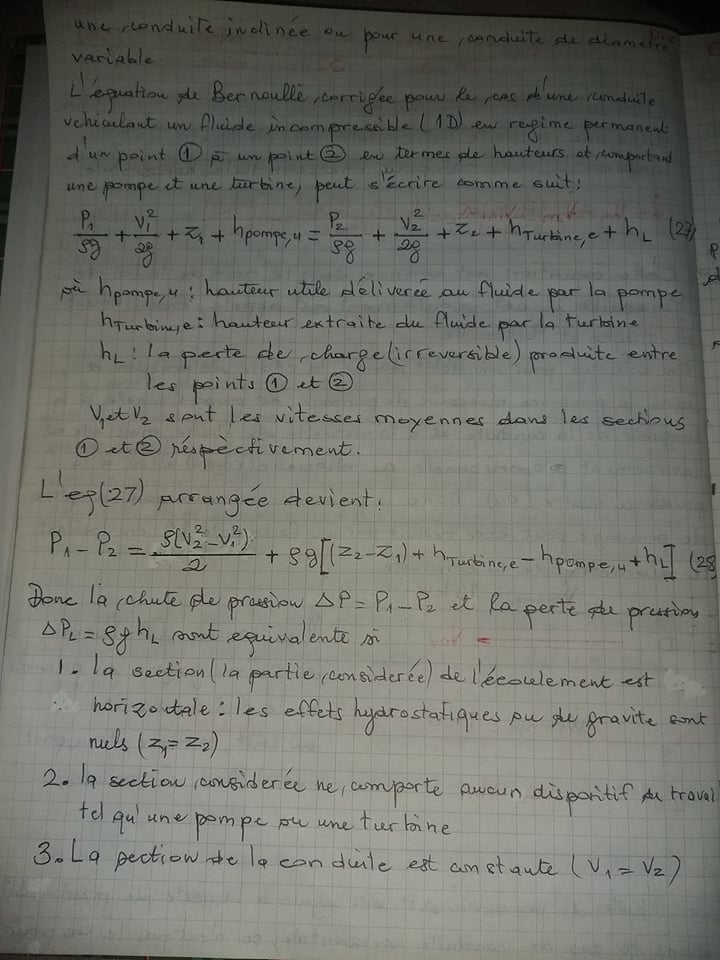 une conduite inclinée ou pour une conduite de diametre
variable
L'équation de Bernoullè corrigée pour le cas d'une conduite
vehiculant un fluide incompressible (1D) en regime permanent
d'un point ① à un point ② en termes de hauteurs et comportant
une pompe et une turbine, peut s'écrire comme suit:
P₁/ρg + V₁²/2g + z₁ + hpompe,u = P₂/ρg + V₂²/2g + z₂ + hTurbine,e + hL (27)
où hpompe,u : hauteur utile déliverée au fluide par la pompe
hTurbine,e : hauteur extraite du fluide par la turbine
hL : la perte de charge (irreversible) produite entre
les points ① et ②
V₁ et V₂ sont les vitesses moyennes dans les sections
① et ② réspèctivement.
L'eq(27) arrangée devient:
P₁ - P₂ = ρ(V₂² - V₁²)/2 + ρg[(z₂ - z₁) + hTurbine,e - hpompe,u + hL] (28)
Donc la chute de pression ΔP = P₁ - P₂ et la perte de pression
ΔPL = ρghL sont equivalente si
1. la section (la partie considerée) de l'écoulement est
horizontale : les effets hydrostatiques ou de gravite sont
nuls (z₁ = z₂)
2. la section considerée ne comporte aucun dispositif de travail
tel qu'une pompe ou une turbine
3. La section de la conduite est constante (V₁ = V₂)